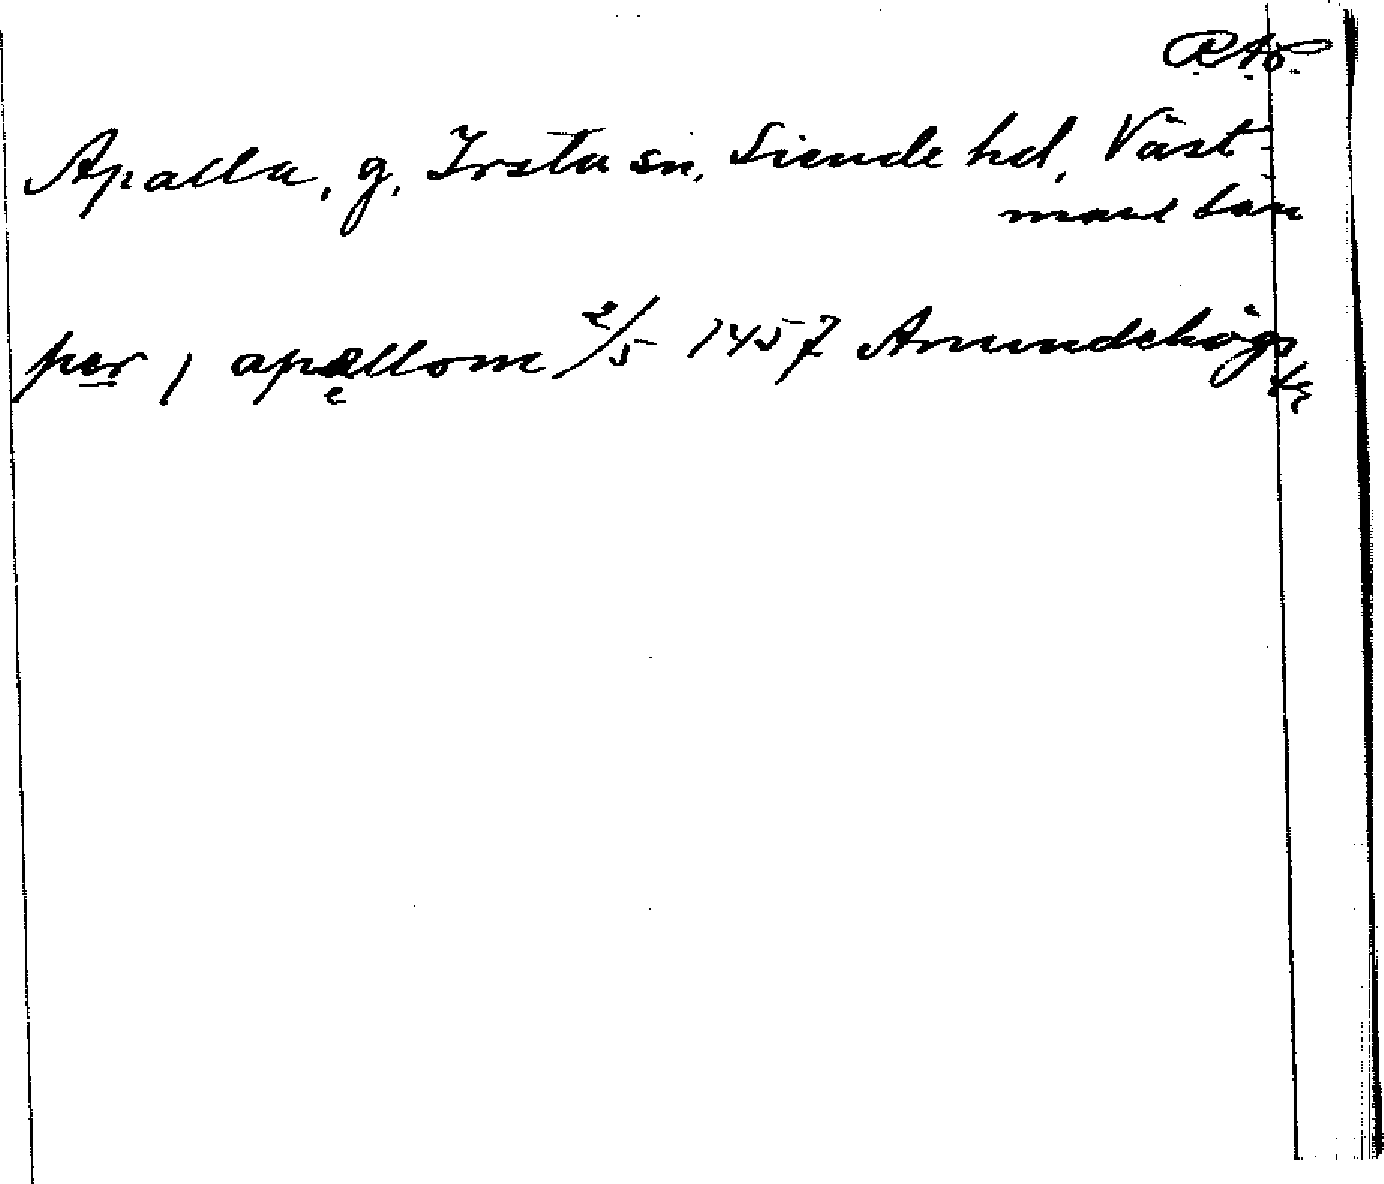 RAÖ
Apalla, g, Irsta sn, Siende hd, Väst-
manland
per j apællom 2/5 1457 Amundehögs